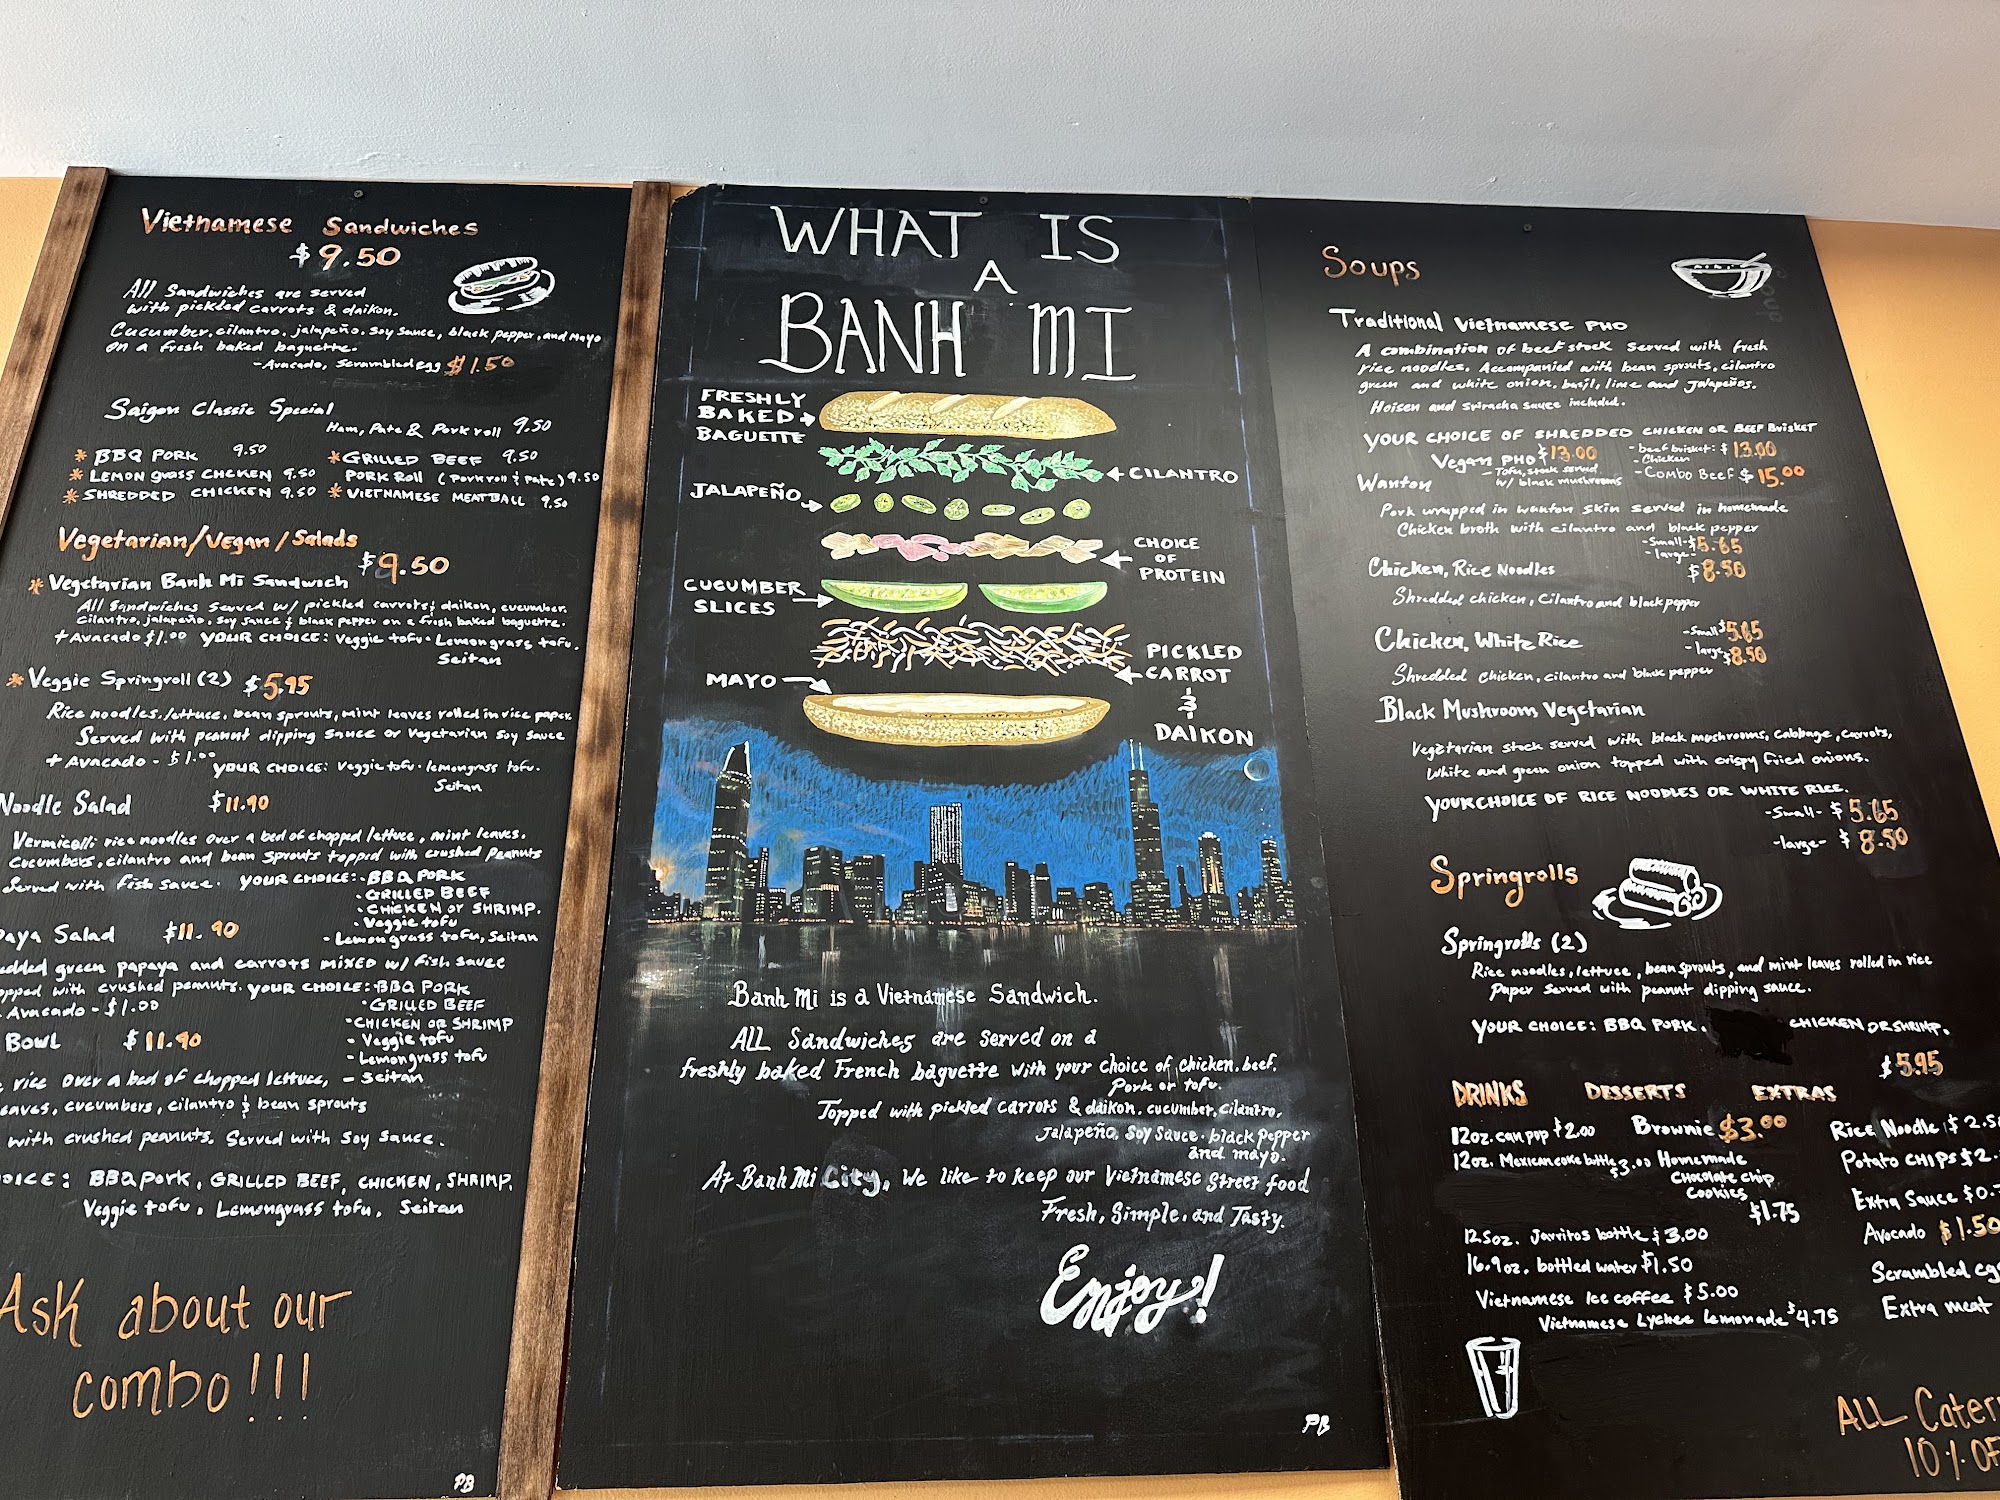 Vietnamese Sandwiches
$9.50
All Sandwiches are served
with pickled carrots & daikon.
Cucumber, cilantro, jalapeño, soy sauce, black pepper, and Mayo
on a fresh baked baguette.
-Avacado, Scrambled Egg $1.50
Saigon Classic Special
Ham, Pate & Pork roll 9.50
* BBQ PORK 9.50
* LEMON grass CHCKEN 9.50
* SHREDDED CHICKEN 9.50
* GRILLED BEEF 9.50
PORK Roll (Pork roll & Pate) 9.50
* VIETNAMESE MEATBALL 9.50
Vegetarian/Vegan/Salads
$9.50
* Vegetarian Banh Mi Sandwich
All Sandwiches served w/ pickled carrots & daikon, cucumber,
cilantro, jalapeño, soy sauce & black pepper on a fresh baked baguette.
+ Avacado $1.00 YOUR CHOICE: Veggie tofu · Lemongrass tofu.
Seitan
* Veggie Springroll (2) $5.95
Rice noodles, lettuce, bean sprouts, mint leaves rolled in rice paper.
Served with peanut dipping sauce or Vegetarian Soy Sauce
+ Avacado - $1.00 YOUR CHOICE: Veggie tofu · lemongrass tofu.
Seitan
Noodle Salad $11.90
Vermicelli rice noodles over a bed of chopped lettuce, mint leaves.
cucumbers, cilantro and bean sprouts topped with crushed peanuts
Served with fish sauce. YOUR CHOICE: · BBQ PORK
· GRILLED BEEF
· CHICKEN or SHRIMP.
· Veggie tofu
- Lemongrass tofu, Seitan
aya Salad $11.90
edded green papaya and carrots MIXED w/ fish sauce
opped with crushed peanuts. YOUR CHOICE: · BBQ PORK
Avacado - $1.00
· GRILLED BEEF
· CHICKEN OR SHRIMP
- Veggie tofu
- Lemongrass tofu
- Seitan
Bowl $11.90
rice over a bed of chopped lettuce,
eaves, cucumbers, cilantro & bean sprouts
with crushed peanuts. Served with soy sauce.
OICE: BBQ PORK, GRILLED BEEF, CHICKEN, SHRIMP,
Veggie tofu, Lemongrass tofu, Seitan
Ask about our
combo!!!
PB
WHAT IS
A
BANH MI
FRESHLY
BAKED
BAGUETTE
CILANTRO
JALAPEÑO
CHOICE
OF
PROTEIN
CUCUMBER
SLICES
PICKLED
CARROT
&
DAIKON
MAYO
Banh Mi is a Vietnamese Sandwich.
ALL Sandwiches are served on a
freshly baked French baguette with your choice of chicken, beef,
Pork or tofu.
Topped with pickled carrots & daikon, cucumber, cilantro,
Jalapeño, Soy Sauce, black pepper
and mayo.
At Banh Mi City, We like to keep our Vietnamese street food
Fresh, Simple, and Tasty.
Enjoy!
PB
Soups
Traditional Vietnamese PHO
A combination of beef stock served with fresh
rice noodles. Accompanied with bean sprouts, cilantro
green and white onion, basil, lime and Jalapeños.
Hoisen and sriracha sauce included.
YOUR CHOICE OF SHREDDED CHICKEN OR BEEF Brisket
Vegan PHO $13.00
- Tofu, stock served
w/ black mushrooms
- beef brisket: $13.00
- Chicken
- Combo Beef $15.00
Wanton
Pork wrapped in wanton skin served in homemade
Chicken broth with cilantro and black pepper
- small - $5.65
- large - $8.50
Chicken, Rice Noodles
Shredded chicken, Cilantro and black pepper
Chicken, White Rice
- small $5.65
- large $8.50
Shredded chicken, cilantro and black pepper
Black Mushroom Vegetarian
Vegetarian stock served with black mushrooms, Cabbage, carrots,
White and green onion topped with crispy fried onions.
YOUR CHOICE OF RICE NOODLES OR WHITE RICE.
- Small - $5.65
- large - $8.50
Springrolls
Springrolls (2)
Rice noodles, lettuce, bean sprouts, and mint leaves rolled in rice
Paper served with peanut dipping sauce.
YOUR CHOICE: BBQ PORK. CHICKEN OR SHRIMP.
$5.95
DRINKS
12oz. can pop $2.00
12oz. Mexican coke bottle $3.00
12.5oz. Jarritos bottle $3.00
16.9oz. bottled water $1.50
Vietnamese Ice coffee $5.00
Vietnamese Lychee Lemonade $4.75
DESSERTS
Brownie $3.00
Homemade
Chocolate chip
Cookies
$1.75
EXTRAS
Rice Noodle $2.5
Potato CHIPS $2.
Extra Sauce $0.7
Avocado $1.50
Scrambled eg
Extra meat
ALL Cater
10% OF